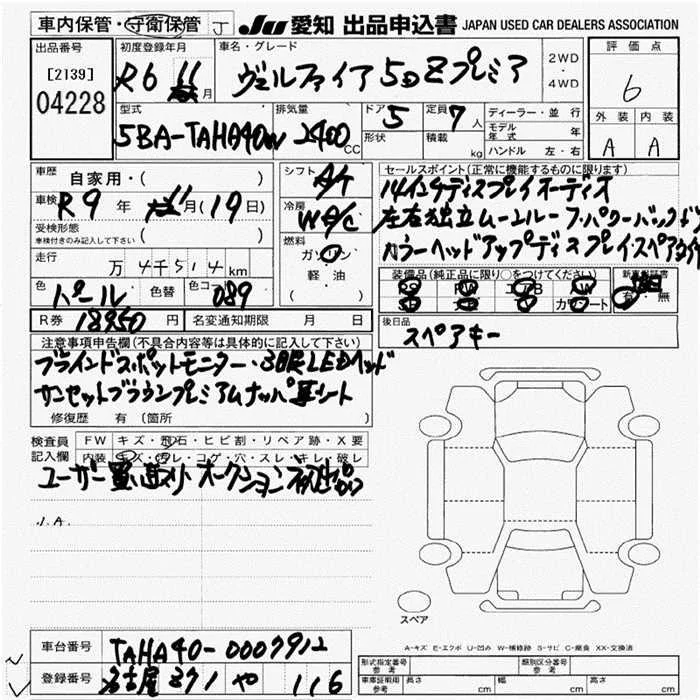 車内保管・守衛保管 J JU 愛知 出品申込書 JAPAN USED CAR DEALERS ASSOCIATION
出品番号 [2139] 04228
初度登録年月 R6 11 月
車名・グレード ヴェルファイア 5D Zプレミア
2WD・4WD
評価点 6
外装 A 内装 A
型式 5BA-TAHA40W
排気量 2400 CC
ドア 5 形状
定員 7人 積載 kg
ディーラー・並行
モデル年式 年
ハンドル 左・右
車歴 自家用・( )
車検 R9年 11月(19日)
受検形態 車検付きのみ記入して下さい ( )
走行 万4千514km
色 パール 色替 色コード 089
R券 18950円 名変通知期限 月 日
シフト A/T
冷房 WA/C
燃料 ガソリン 軽油 ( )
セールスポイント(正常に機能するものに限ります)
14インチディスプレイオーディオ
左右独立ムーンルーフ・パワーバックドア
カラーヘッドアップディスプレイ・スペアタイヤ
装備品(純正品に限り○をつけてください) 新車保証書
PS PW エアB AW 有・無
SR ナビ カワシート
後日品 スペアキー
注意事項申告欄(不具合内容等は具体的に記入して下さい)
ブラインドスポットモニター・3眼LEDヘッド
サンセットブラウンプレミアムナッパ革シート
修復歴 有 (箇所 )
検査員記入欄 FW キズ・飛石・ヒビ割・リペア跡・X要
内装 キズ・汚レ・コゲ・穴・スレ・キレ・破レ
ユーザー買い取り オークション初出品
J.A.
スペア
A-キズ E-エクボ U-凹み W-補修跡 S-サビ C-腐食 XX-交換済
車台番号 TAHA40-0007912
登録番号 名古屋 371 や 116
形式指定番号 参考 類別区分番号 参考
車庫証明用 参考 長さ cm 幅 cm 高さ cm